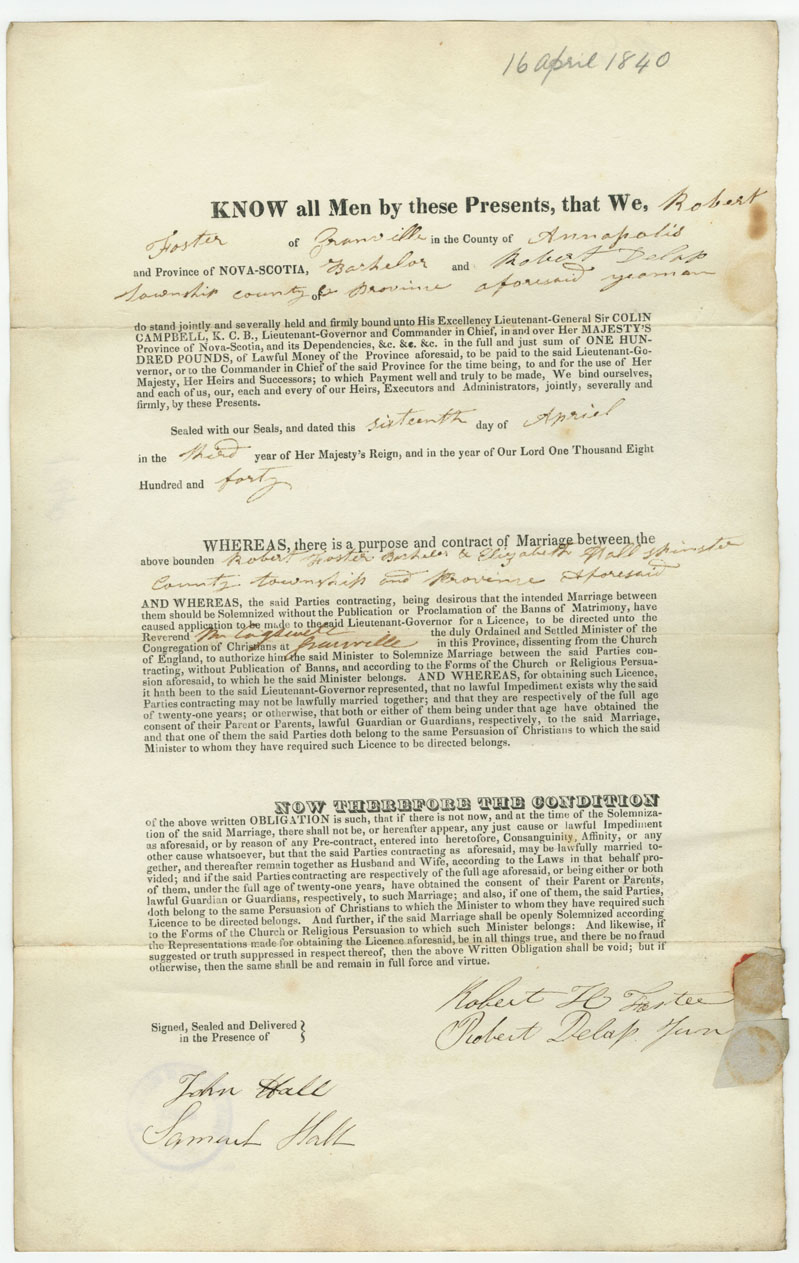 16 April 1840
KNOW all Men by these Presents, that We, Robert
Foster of Granville in the County of Annapolis
and Province of NOVA-SCOTIA, Bachelor and Robert Delap
township county of & Province aforesaid yeoman
do stand jointly and severally held and firmly bound unto His Excellency Lieutenant-General Sir COLIN
CAMPBELL, K. C. B., Lieutenant-Governor and Commander in Chief, in and over Her MAJESTY'S
Province of Nova-Scotia, and its Dependencies, &c. &c. &c. in the full and just sum of ONE HUN-
DRED POUNDS, of Lawful Money of the Province aforesaid, to be paid to the said Lieutenant-Go-
vernor, or to the Commander in Chief of the said Province for the time being, to and for the use of Her
Majesty, Her Heirs and Successors; to which Payment well and truly to be made, We bind ourselves,
and each of us, our, each and every of our Heirs, Executors and Administrators, jointly, severally and
firmly, by these Presents.
Sealed with our Seals, and dated this sixteenth day of Apriel
in the third year of Her Majesty's Reign, and in the year of Our Lord One Thousand Eight
Hundred and forty
WHEREAS, there is a purpose and contract of Marriage between the
above bounden Robert Foster Bachelor & Elizabeth Hall spinster
County township and Province Aforesaid
AND WHEREAS, the said Parties contracting, being desirous that the intended Marriage between
them should be Solemnized without the Publication or Proclamation of the Banns of Matrimony, have
caused application to be made to the said Lieutenant-Governor for a Licence, to be directed unto the
Reverend Mr Cogswell the duly Ordained and Settled Minister of the
Congregation of Christians at Granville in this Province, dissenting from the Church
of England, to authorize him the said Minister to Solemnize Marriage between the said Parties con-
tracting, without Publication of Banns, and according to the Forms of the Church or Religious Persua-
sion aforesaid, to which he the said Minister belongs. AND WHEREAS, for obtaining such Licence,
it hath been to the said Lieutenant-Governor represented, that no lawful Impediment exists why the said
Parties contracting may not be lawfully married together; and that they are respectively of the full age
of twenty-one years; or otherwise, that both or either of them being under that age have obtained the
consent of their Parent or Parents, lawful Guardian or Guardians, respectively, to the said Marriage,
and that one of them the said Parties doth belong to the same Persuasion of Christians to which the said
Minister to whom they have required such Licence to be directed belongs.
NOW THEREFORE THE CONDITION
of the above written OBLIGATION is such, that if there is not now, and at the time of the Solemniza-
tion of the said Marriage, there shall not be, or hereafter appear, any just cause or lawful Impediment
as aforesaid, or by reason of any Pre-contract, entered into heretofore, Consanguinity, Affinity, or any
other cause whatsoever, but that the said Parties contracting as aforesaid, may be lawfully married to-
gether, and thereafter remain together as Husband and Wife, according to the Laws in that behalf pro-
vided; and if the said Parties contracting are respectively of the full age aforesaid, or being either or both
of them, under the full age of twenty-one years, have obtained the consent of their Parent or Parents,
lawful Guardian or Guardians, respectively, to such Marriage; and also, if one of them, the said Parties,
doth belong to the same Persuasion of Christians to which the Minister to whom they have required such
Licence to be directed belongs. And further, if the said Marriage shall be openly Solemnized according
to the Forms of the Church or Religious Persuasion to which such Minister belongs: And likewise, if
the Representations made for obtaining the Licence aforesaid, be in all things true, and there be no fraud
suggested or truth suppressed in respect thereof, then the above Written Obligation shall be void; but if
otherwise, then the same shall be and remain in full force and virtue.
Robert H Foster
Signed, Sealed and Delivered }
in the Presence of
Robert Delap Jun
John Hall
Samuel Hall